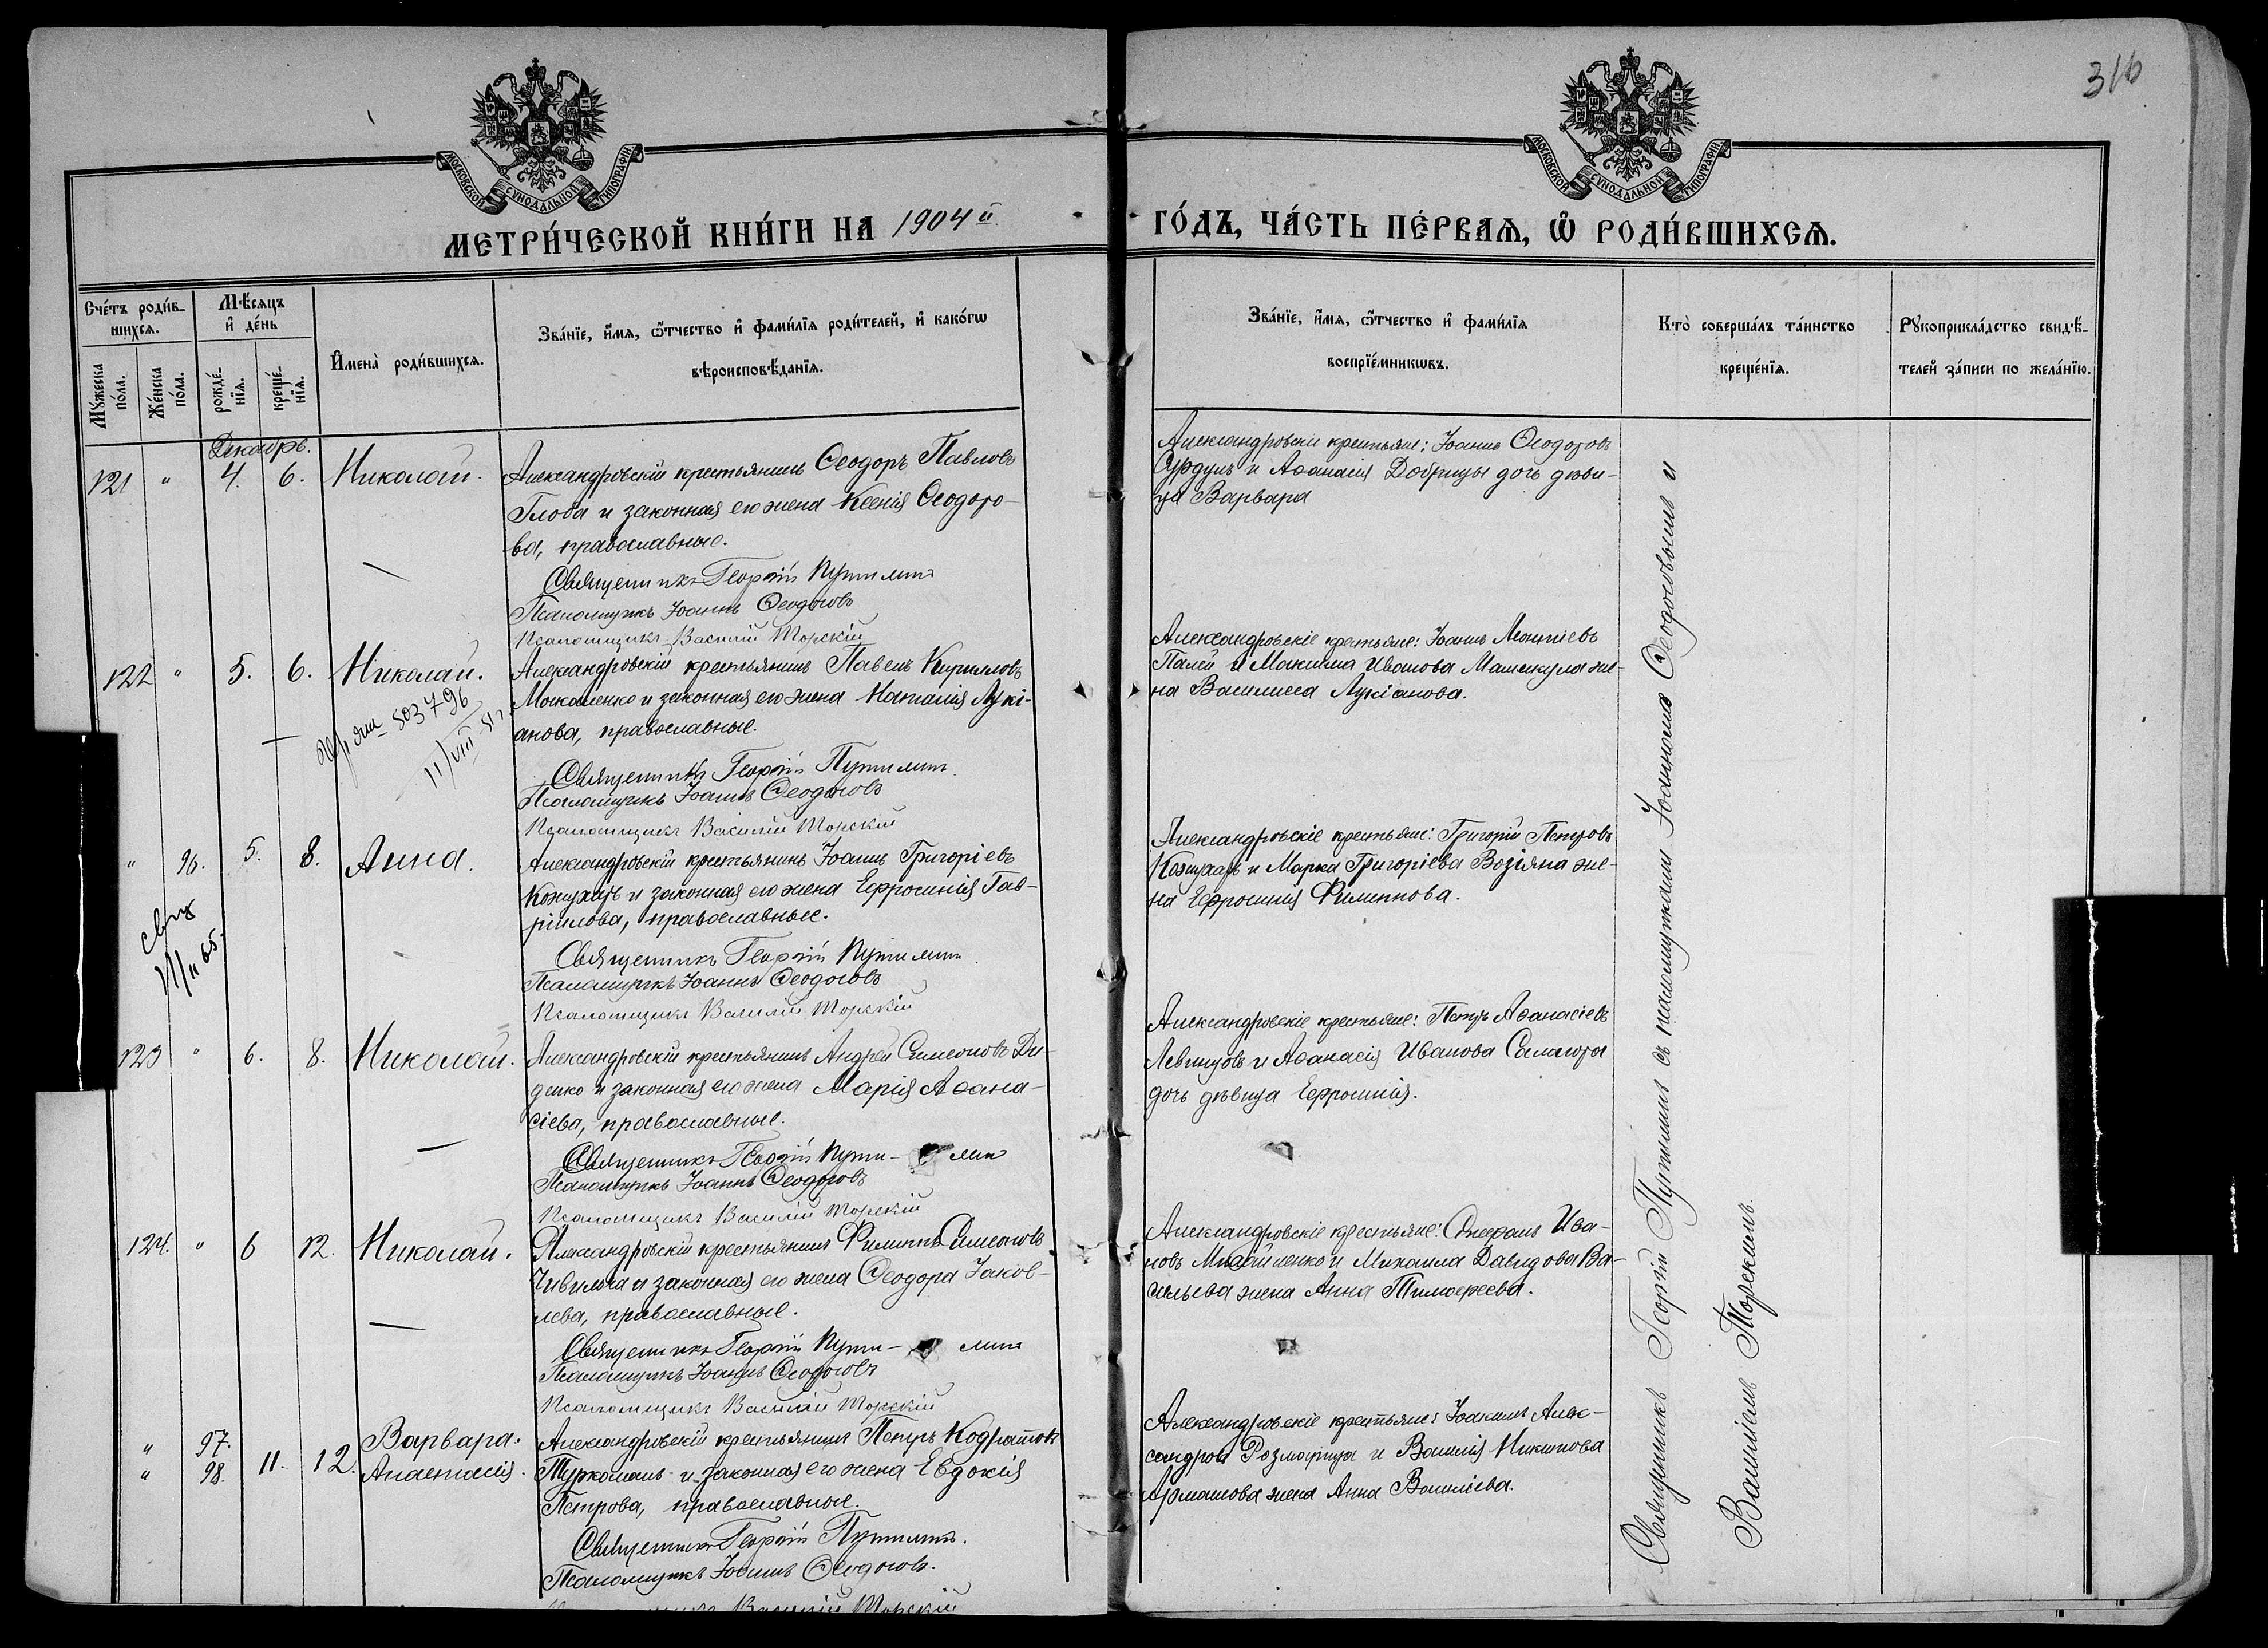 316
МОСКОВСКОЙ СѴНОДАЛЬНОЙ ТИПОГРАФІИ
МОСКОВСКОЙ СѴНОДАЛЬНОЙ ТИПОГРАФІИ
МЕТРИ́ЧЕСКОЙ КНИ́ГИ НА 1904 й
ГО́ДЪ, ЧА́СТЬ ПЕ́РВАѦ, Ѡ҆ РОДИ́ВШИХСѦ.
Сче́тъ роди́в-
шихсѧ.
Му́жеска по́ла.
Же́нска по́ла.
Мѣ́сѧцъ
и҆ де́нь
рожде́нїѧ.
креще́нїѧ.
И҆мена̀ роди́вшихсѧ.
Зва́нїе, и҆́мѧ, ѻ҆́тчество и҆ фами́лїѧ роди́телей, и҆ како́гѡ
вѣроисповѣ́данїѧ.
Зва́нїе, и҆́мѧ, ѻ҆́тчество и҆ фами́лїѧ
воспрїе́мникѡвъ.
Кто̀ соверша́лъ та́инство
креще́нїѧ.
Рꙋкоприкла́дство свидѣ́-
телей за́писи по жела́нїю.
Декабрь.
121 " 4. 6. Николай.
Александровскій крестьянинъ Ѳеодоръ Павловъ
Глоба и законная его жена Ксенія Ѳеодоро-
ва, православные.
Священникъ Георгій Путилинъ
Псаломщикъ Іоаннъ Ѳеодосовъ
Псаломщикъ Василій Торскій
Александровскіе крестьяне: Іоаннъ Ѳеодоровъ
и Аѳанасія Добрицы дочь дѣви-
ца Варвара
122 " 5. 6. Николай.
503796
11/VIII 51 г.
Александровскій крестьянинъ Павелъ Кирилловъ
Москаленко и законная его жена Наталія Лукі-
анова, православные.
Священникъ Георгій Путилинъ
Псаломщикъ Іоаннъ Ѳеодосовъ
Псаломщикъ Василій Торскій
Александровскіе крестьяне: Іоаннъ Леонтіевъ
Палей и Максима Иванова жe-
на Василисса Лукіанова.
" 96. 5. 8. Анна.
Александровскій крестьянинъ Іоаннъ Григоріевъ
Кожухарь и законная его жена Ефросинія Гав-
ріилова, православные.
Священникъ Георгій Путилинъ
Псаломщикъ Іоаннъ Ѳеодосовъ
Псаломщикъ Василій Торскій
Александровскіе крестьяне: Григорій Петровъ
Кожухарь и Марка Григоріева Возіяна же-
на Ефросинія Филиппова.
123 " 6. 8. Николай.
Александровскій крестьянинъ Андрей Симеоновъ Ди-
денко и законная его жена Марія Аѳана-
сіева, православные.
Священникъ Георгій Пути-линъ
Псаломщикъ Іоаннъ Ѳеодосовъ
Псаломщикъ Василій Торскій
Александровскіе крестьяне: Петръ Аѳанасіевъ
Левинцовъ и Аѳанасія Иванова
дочь дѣвица Ефросинія.
124. " 6 12. Николай.
Александровскій крестьянинъ Филиппъ Симеоновъ
и законная его жена Ѳеодора Іаков-
лева, православные.
Священникъ Георгій Пути-линъ
Псаломщикъ Іоаннъ Ѳеодосовъ
Псаломщикъ Василій Торскій
Александровскіе крестьяне: Стефанъ Ива-
новъ и Михаила Давидова Ва-
сильева жена Анна Тимоѳеева.
" 97. Варвара.
" 98. 11. 12. Анастасія.
Александровскій крестьянинъ Петръ Кодратовъ
Туркоманъ и законная его жена Евдокія
Петрова, православные.
Священникъ Георгій Путилинъ.
Псаломщикъ Іоаннъ Ѳеодосовъ.
Василій Торскій
Александровскіе крестьяне: Іоакимъ Алек-
сандровъ Розмарица и Василія Никитова
Армашова жена Анна Василіева.
Священникъ Георгій Путилинъ съ псаломщиками Іоанномъ Ѳеодосовымъ и
Василіемъ Торскимъ.